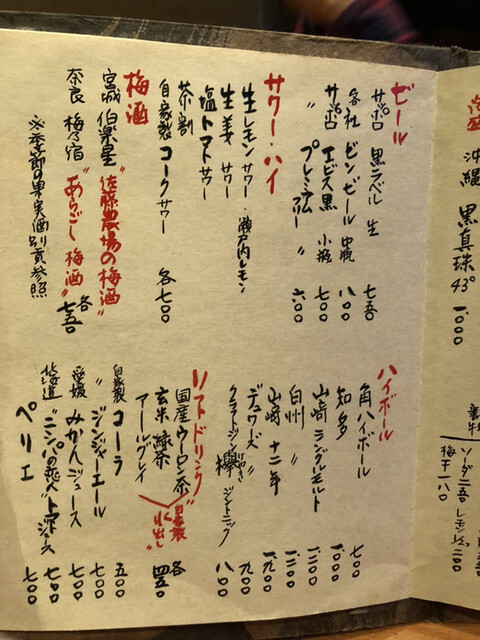 泡盛
沖縄 黒真珠 43° 1.000
ソーダ 二五〇 レモン 二〇〇
梅干 一八〇
ビール
サッポロ 黒ラベル 生 七五〇
各社 ビンビール 中瓶 八〇〇
サッポロ エビス黒 小瓶 七〇〇
〃 プレミアム 〃 六〇〇
サワー・ハイ
生レモンサワー・瀬戸内レモン
生姜サワー
塩トマトサワー
茶割
自家製 コークサワー 各七〇〇
梅酒
宮城 伯楽星 "佐藤農場の梅酒"
奈良 梅乃宿 "あらごし梅酒" 各七五〇
※季節の果実酒別頁参照
ハイボール
角ハイボール 七〇〇
知多 一.〇〇〇
山崎 シングルモルト 一.二〇〇
山崎 十二年 一.九〇〇
白州 〃 一.二〇〇
デュワーズ 〃 七〇〇
クラフトジン 欅 ジントニック 八〇〇
ソフトドリンク
国産ウーロン茶
玄米緑茶
アールグレイ
"自家製水出し" 各四五〇
自家製 コーラ 五〇〇
〃 ジンジャーエール 七〇〇
愛媛 みかんジュース 七〇〇
北海道 "ニシパの恋人"トマトジュース 七〇〇
ペリエ 七〇〇